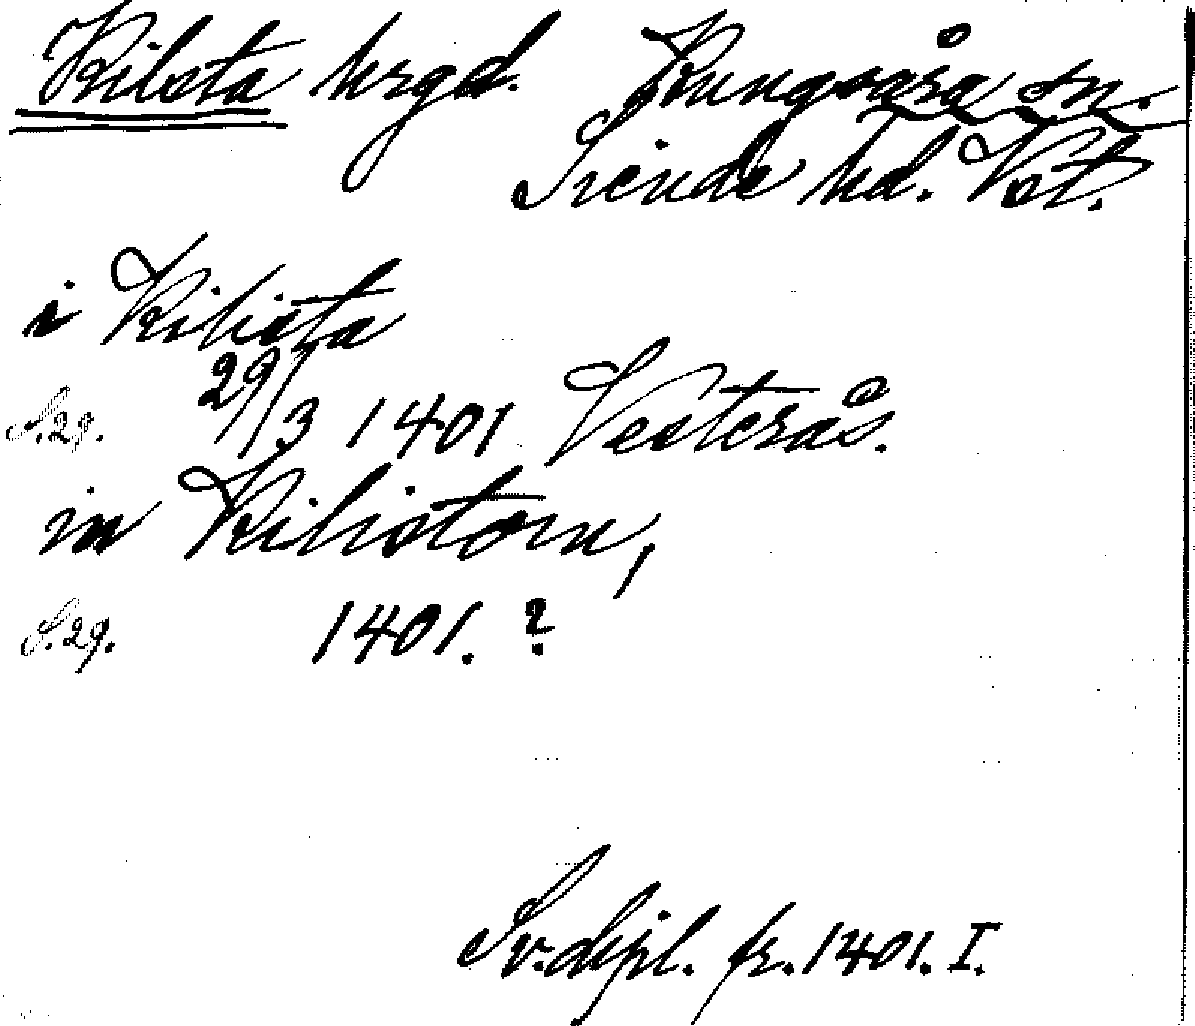 Kilsta hrgd. Kungsåra sn.
Siende hd. Vst.
i Kilista
S. 29. 29/3 1401 Vesterås.
in Kilistom,
S. 29. 1401. ?
Sv. dipl. fr. 1401. I.